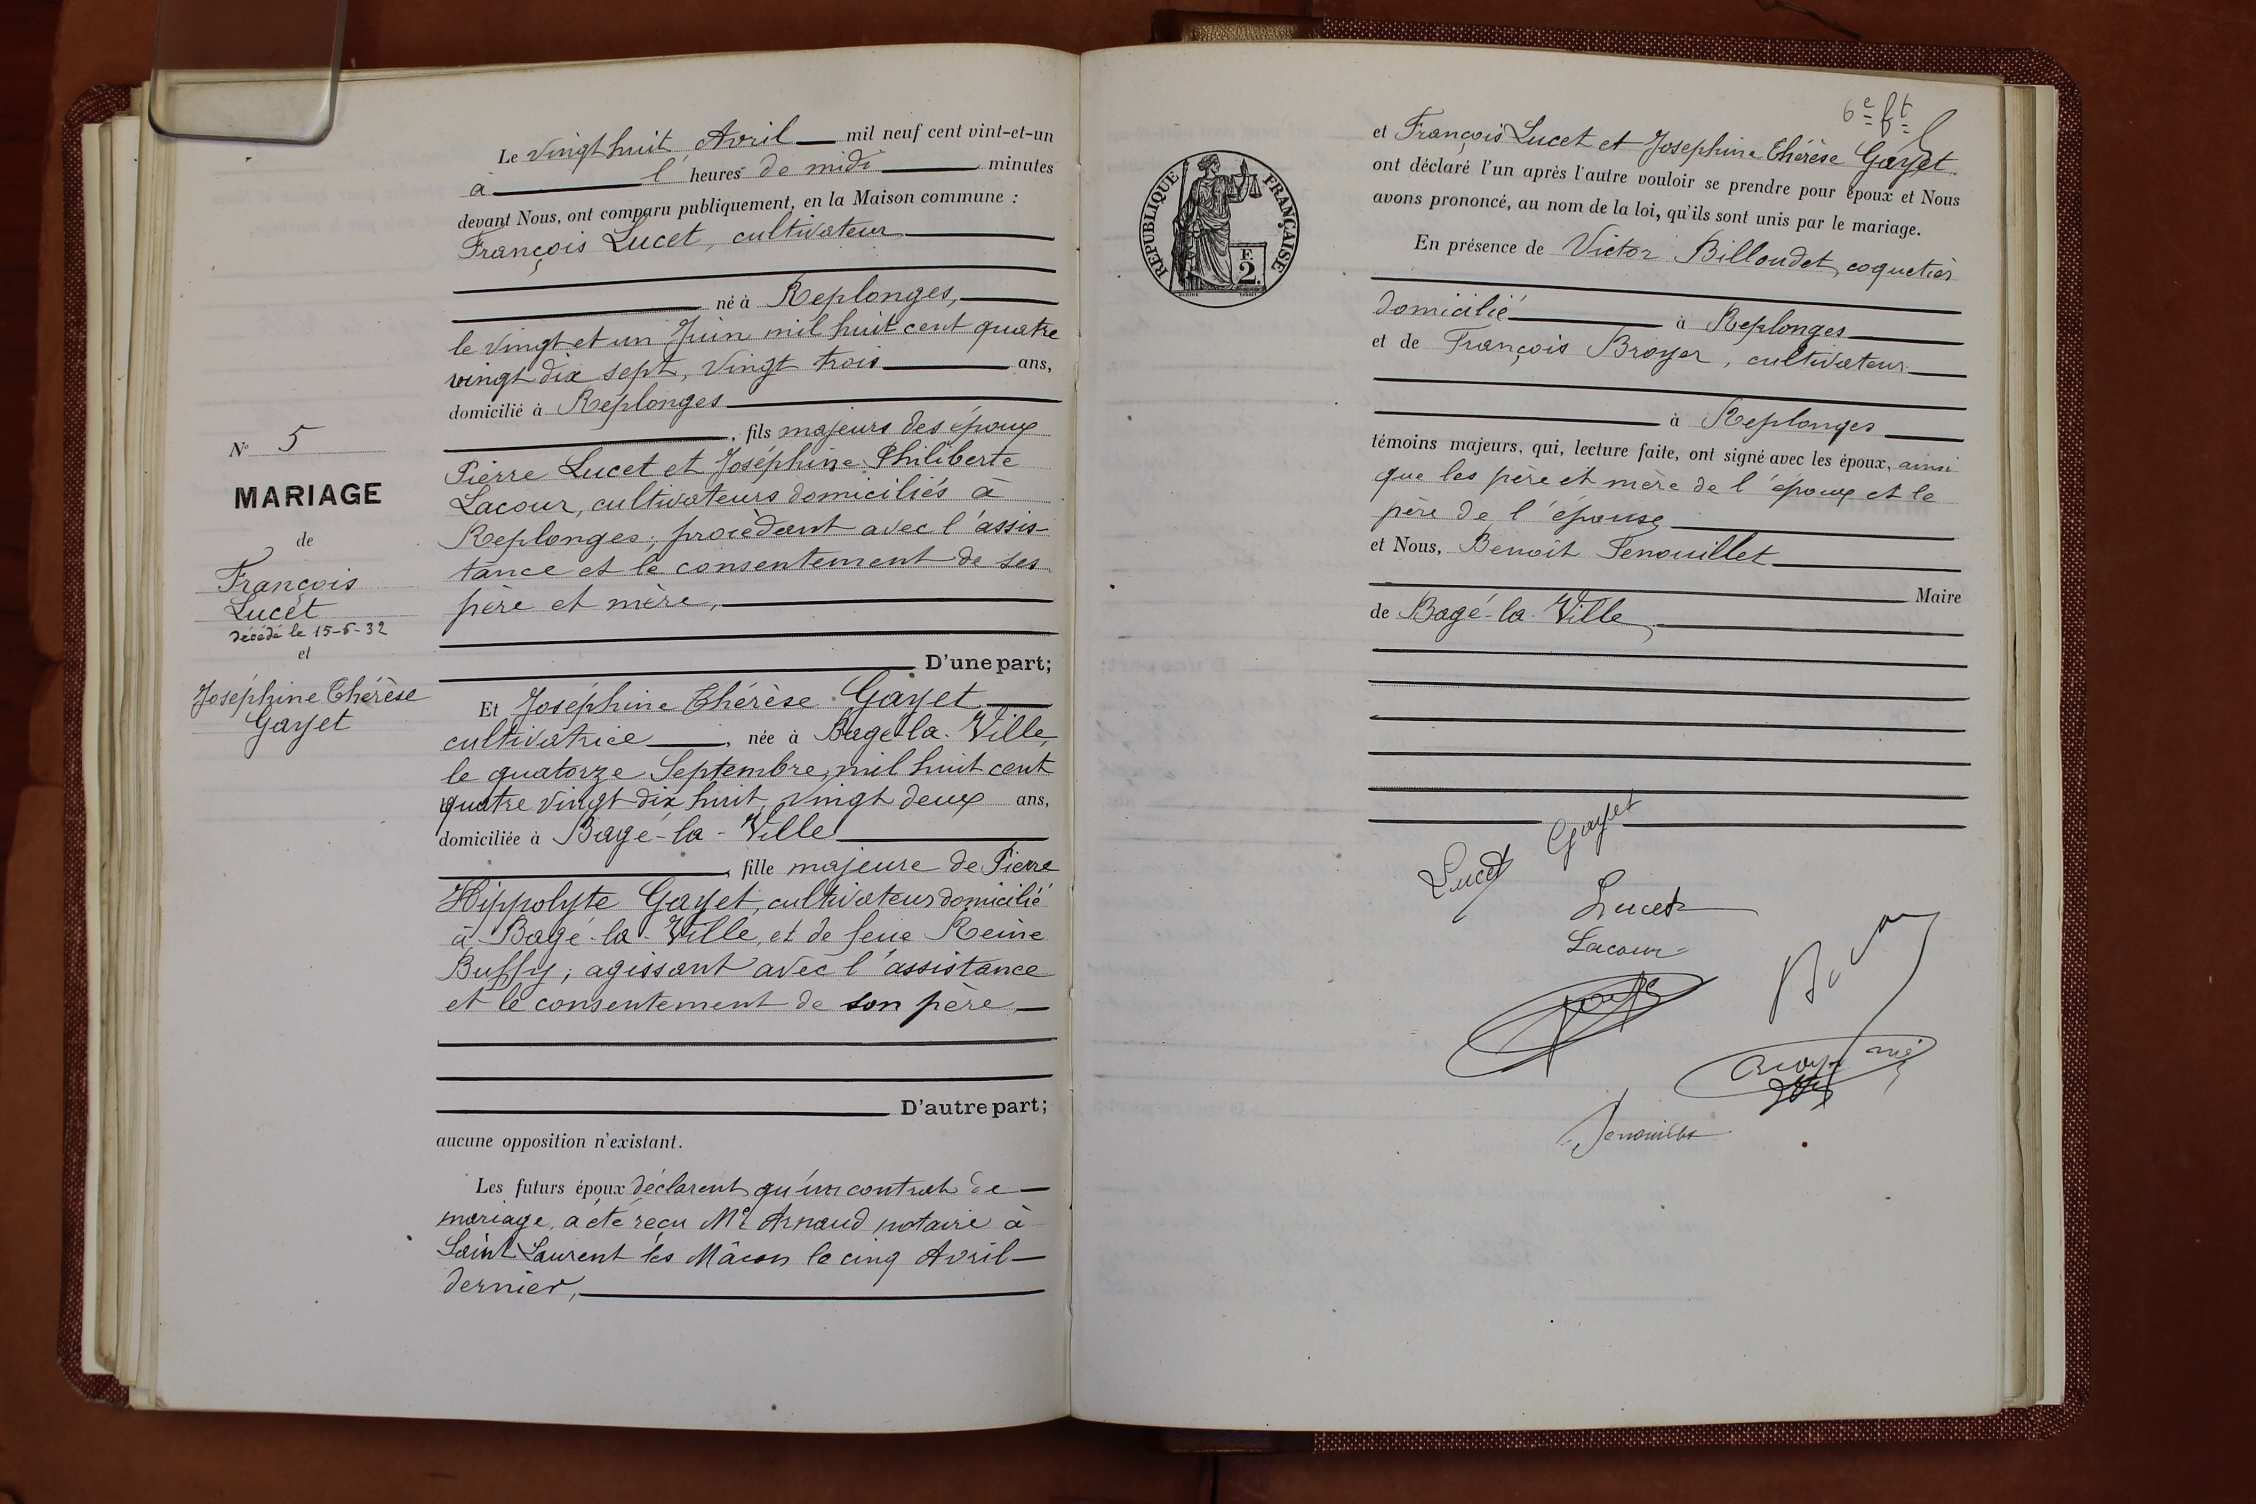 Le vingt huit Avril mil neuf cent vint-et-un
à l' heures de midi minutes
devant Nous, ont comparu publiquement, en la Maison commune :
François Lucet, cultivateur
né à Replonges,
le vingt et un Juin mil huit cent quatre
vingt dix sept, vingt trois ans,
domicilié à Replonges
, fils majeurs des époux
Pierre Lucet et Joséphine Philiberte
Lacour, cultivateurs domiciliés à
Replonges; procèdant avec l'assis-
tance et le consentement de ses
père et mère,
D'une part;
Et Joséphine Thérèse Gayet
cultivatrice, née à Bagé-la-Ville,
le quatorze Septembre, mil huit cent
quatre vingt dix huit, vingt deux ans,
domiciliée à Bagé-la-Ville
, fille majeure de Pierre
Hippolyte Gayet, cultivateur domicilié
à Bagé-la-Ville, et de feue Reine
Buffy; agissant avec l'assistance
et le consentement de son père
D'autre part;
aucune opposition n'existant.
Les futurs époux déclarent qu'un contrat de
mariage, a été reçu Me Arnaud notaire à
Saint Laurent lès Mâcon le cinq Avril
dernier,
No 5
MARIAGE
de
François
Lucet
décédé le 15-6-32
et
Joséphine Thérèse
Gayet
6e ft
RÉPUBLIQUE FRANÇAISE
F
2
et François Lucet et Josephine Thérèse Gayet
ont déclaré l'un après l'autre vouloir se prendre pour époux et Nous
avons prononcé, au nom de la loi, qu'ils sont unis par le mariage.
En présence de Victor Billoudet, coquetier
domicilié à Replonges
et de François Broyer, cultivateur
à Replonges
témoins majeurs, qui, lecture faite, ont signé avec les époux, ainsi
que les père et mère de l'époux et le
père de l'épouse
et Nous, Benoît Fenouillet
Maire
de Bagé-la-Ville,
Gayet
Lucet
Lucet
Lacour
Fenouillet